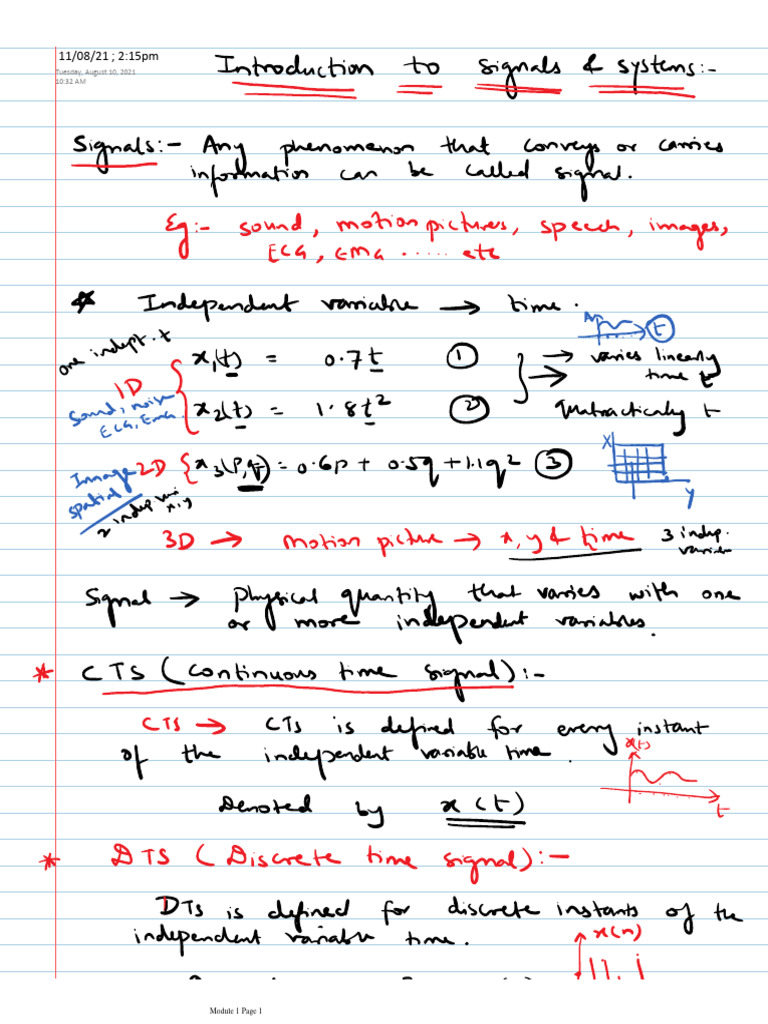 11/08/21 ; 2:15pm
Tuesday, August 10, 2021
10:32 AM
Introduction to signals & systems:-
Signals:- Any phenomenon that conveys or carries
information can be called signal.
Eg:- sound, motion pictures, speech, images,
ECG, EMG ..... etc
* Independent variable → time.
t
one indept. t
x₁(t) = 0.7t ① → varies linearly
time t
1D
sound, noise
ECG, EMG.
x₂(t) = 1.8t² ② t
Image 2D { x₃(p,q) = 0.6p + 0.5q + 1.1q² ③
spatial
2 indep vari
x, y
X
Y
3D → motion picture → x, y & time 3 indep.
Signal → Physical quantity that varies with one
or more independent variables.
* CTS (continuous time signal):-
CTS → CTS is defined for every instant
of the independent variable time.
x(t)
t
Denoted by x(t)
* DTS (Discrete time signal):-
DTS is defined for discrete instants of the
independent variable time.
x(n)
Module 1 Page 1